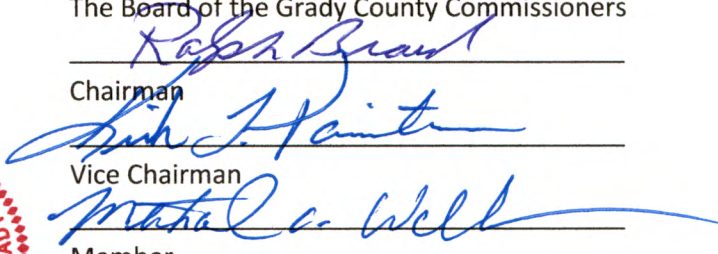 The Board of the Grady County Commissioners
Ralph Beard
Chairman
Kirk L. Painter
Vice Chairman
Michael A. Walk
Member